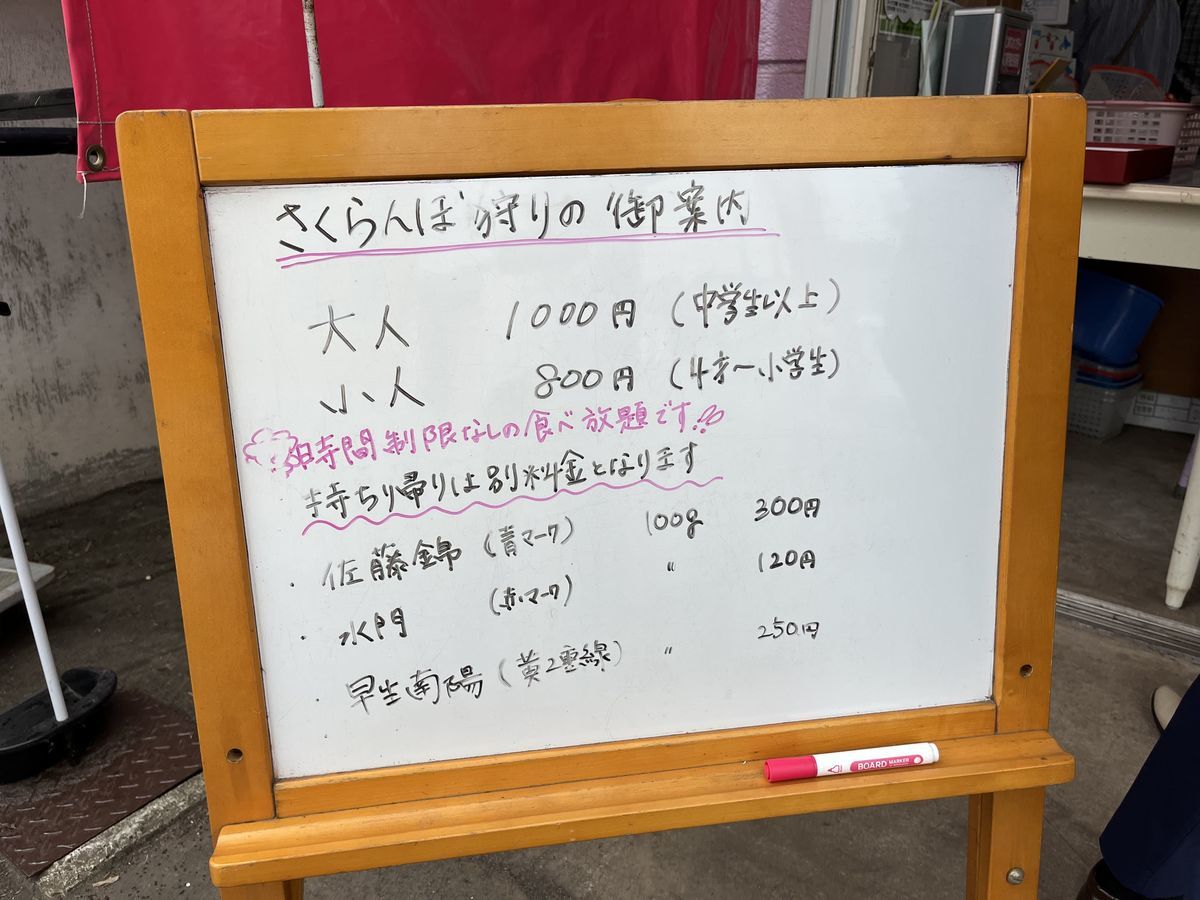 さくらんぼ狩りの御案内
大人 1000円 (中学生以上)
小人 800円 (4才〜小学生)
時間制限なしの食べ放題です!!
持ちり帰りは別料金となります
・佐藤錦 (青マーク) 100g 300円
・水門 (赤マーク) 〃 120円
・早生南陽 (黄2重線) 〃 250円
BOARD MARKER